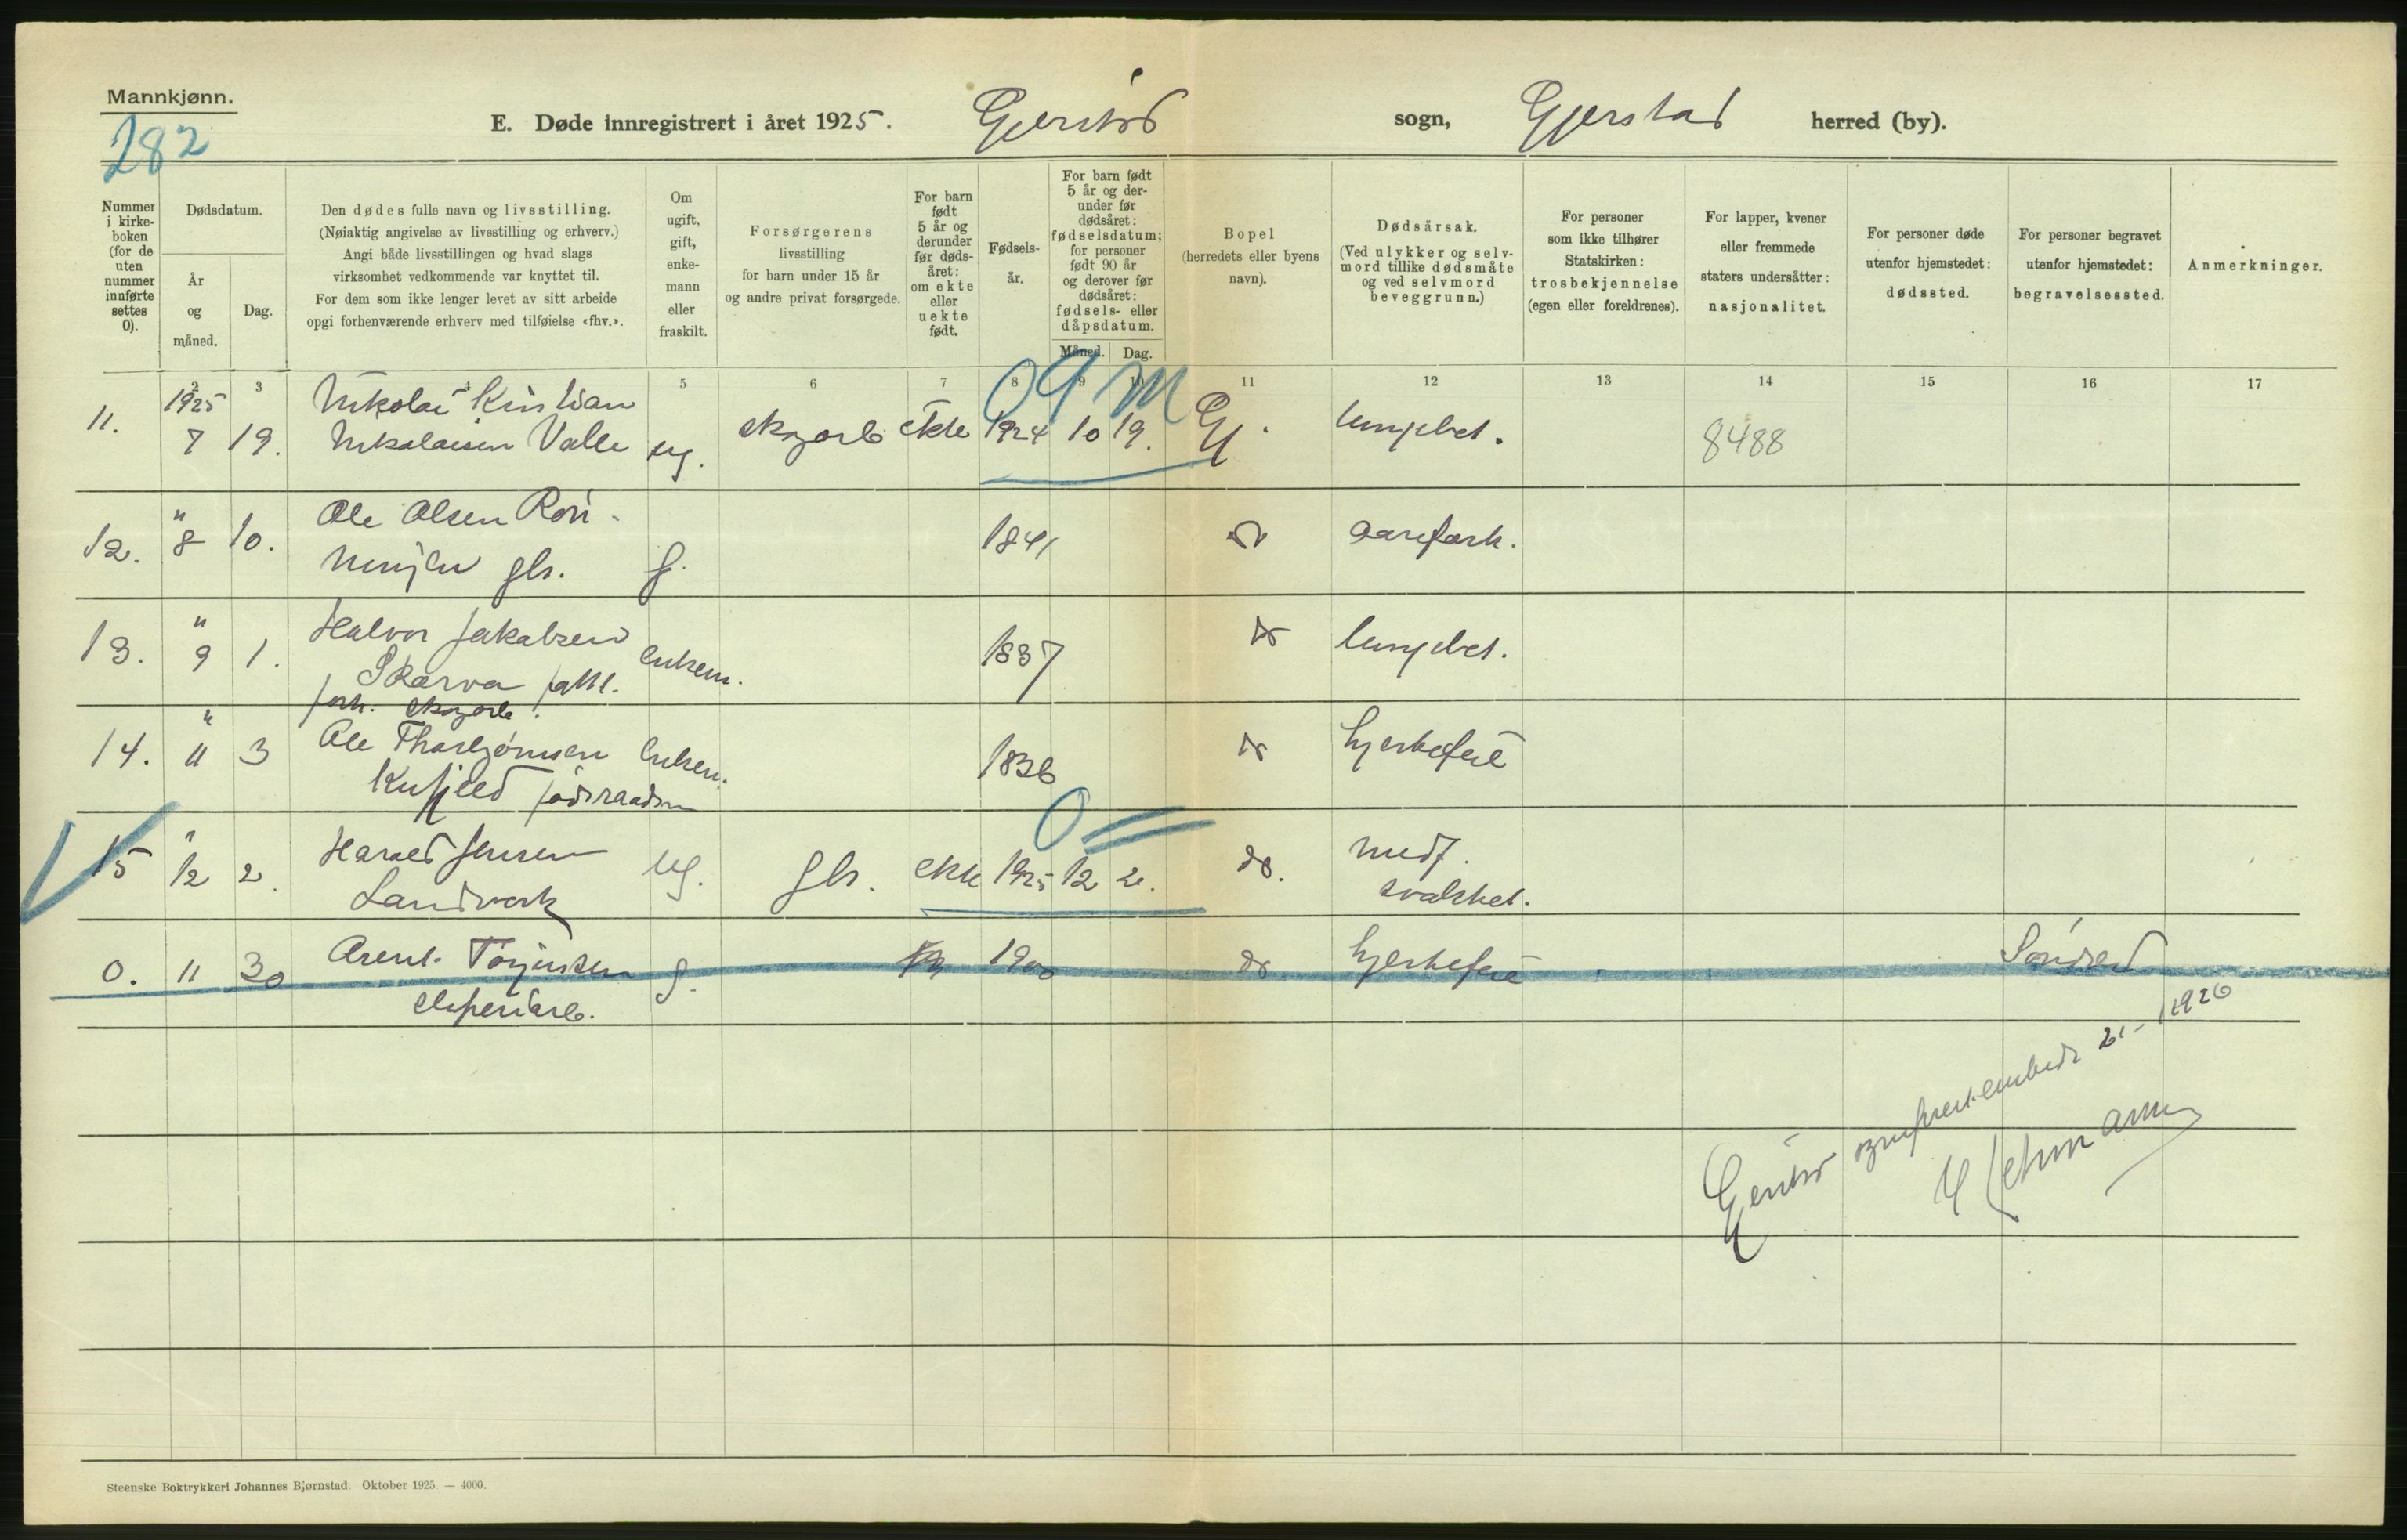 Mannkjønn.
282
E. Døde innregistrert i året 1925. Gjerstad sogn, Gjerstad herred (by).
Nummer i kirkeboken (for de uten nummer innførte settes 0).
Dødsdatum.
År og måned.
Dag.
Den dødes fulle navn og livsstilling.
(Nøiaktig angivelse av livsstilling og erhverv.)
Angi både livsstillingen og hvad slags
virksomhet vedkommende var knyttet til.
For dem som ikke lenger levet av sitt arbeide
opgi forhenværende erhverv med tilføielse «fhv.».
Om ugift, gift, enkemann eller fraskilt.
Forsørgerens
livsstilling
for barn under 15 år
og andre privat forsørgede.
For barn født 5 år og derunder før dødsåret: om ekte eller uekte født.
Fødselsår.
For barn født 5 år og derunder før dødsåret: fødselsdatum; for personer født 90 år og derover før dødsåret: fødsels- eller dåpsdatum.
Måned. Dag.
Bopel
(herredets eller byens
navn).
Dødsårsak.
(Ved ulykker og selvmord tillike dødsmåte og ved selvmord beveggrunn.)
For personer
som ikke tilhører
Statskirken:
trosbekjennelse
(egen eller foreldrenes).
For lapper, kvener
eller fremmede
staters undersåtter:
nasjonalitet.
For personer døde
utenfor hjemstedet:
dødssted.
For personer begravet
utenfor hjemstedet:
begravelsessted.
Anmerkninger.
2 3 4 5 6 7 8 9 10 11 12 13 14 15 16 17
09 M
11. 1925 7 19. Nikolai Kristian
Nikolaisen Valle ug. skogarb ekte 1924 10 19. Gj. lungebet. 8488
12. " 8 10. Ole Olsen Røn-
ningen gbr. g. 1841 do aarefork.
13. " 9 1. Halvor Jakobsen
Skarva fatt. enkem. 1837 do lungebet.
forh. skogarb.
14. " 11 3 Ole Thorbjørnsen enkem. 1836 do hjertefeil
15 " 12 2. Harald Jensen
Landverk ug. gbr. ekte 1925 12 2. do. medf.
svakhet.
0. 11 30 Arent Torjussen g. 1900 do hjertefeil Søndeled
Gjerstad sogneprestembede 21-1 1926
Steenske Boktrykkeri Johannes Bjørnstad. Oktober 1925. — 4000.